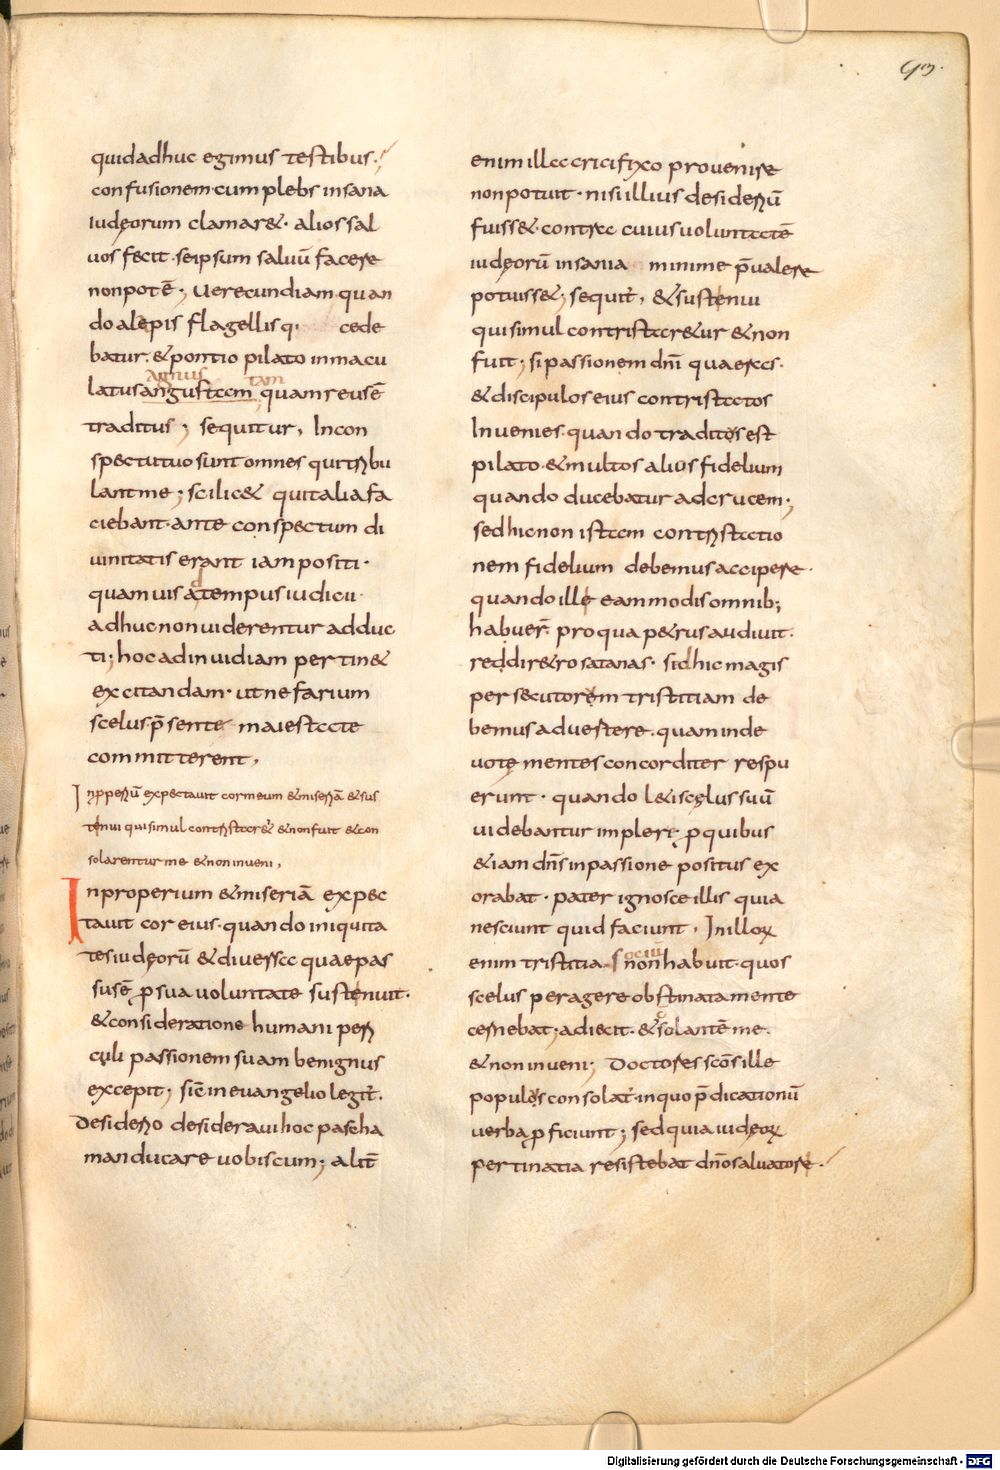 quid adhuc egimus testibus.
confusionem cum plebs insana
iudęorum clamar&. alios sal
uos fecit. seipsum saluū facere
non potē; Uerecundiam quan
do alępis flagellis q. cede
batur. & pontio pilato inmacu
agnus tam
latus angustam quam reusē
traditus; sequitur, In con
spectu tuo sunt omnes qui tribu
lant me; scilic& qui talia fa
ciebant. ante conspectum di
uinitatis erant iam positi.
quamuis a tempus iudicii.
adhuc non uiderentur adduc
ti; hoc ad inuidiam pertin&
excitandam. ut nefarium
scelus p̄sente maiestate
committerent,
Inpperiū expectauit cor meum & miseriā & sus
tenui qui simul contristar& & non fuit & con
solarentur me & non inueni,
Inproperium & miseriā expec
tauit cor eius. quando iniquita
tes iudęorū & diuessa quae pas
susē p sua uoluntate sustenuit.
& consideratione humani peri
culi passionem suam benignus
excepit; sic̄ in euangelio legit̄.
Desiderio desideraui hoc pascha
manducare uobiscum; alit̄
enim illa cricifixo prouenire
non potuit. nisi illius desideriū
fuiss&. contra cuius uoluntatē
iudęorū insania minime p̄ualere
potuiss&; sequit̄, & sustenui
qui simul contristar&ur & non
fuit; si passionem dn̄i quaeras.
& discipulos eius contristatos
Inuenies. quando traditos est
pilato. & multos alius fidelium
quando ducebatur ad crucem;
sed hic non istam contristatio
nem fidelium debemus accipere.
quando ille eam modis omnib;
habuer̄. pro qua p&rus audiuit.
redd ir&ro satanas. sed hic magis
persecutorem tristitiam de
bemus aduertere. quam inde
uotę mentes concorditer respu
erunt. quando l&i scęlus suū
uidebantur implere. p quibus
& iam dn̄s in passione positus ex
orabat. pater ignosce illis quia
nesciunt quid faciunt, In illoꝝ
ociū
enim tristitia s non habuit. quos
scelus peragere obstinata mente
cernebat; adiecit. & solantē me.
& non inueni; Doctores scōs ille
populos consolat̄. in quo p̄dicationū
uerba pficiunt; sed quia iudęoꝝ
pertinatia resistebat dn̄o saluatore.
Digitalisierung gefördert durch die Deutsche Forschungsgemeinschaft - DFG